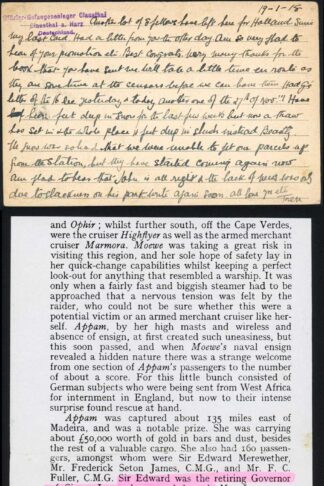 19-1-18
Offizier-Gefangenenlager Clausthal
Clausthal a. Harz
Deutschland.
Another lot of fellows have left here for Holland since
my last card. Had a little from you the other day. Am so very glad to
hear of your promotion etc. Best Congrats. Very many thanks for the
book that you have sent me. will take a little time en route as
they are some time at the censors before we can have them. Had Go
letter of the 16 Dec yesterday & today another one of the 27th of Nov. Have
been feet deep in Snow for the last few weeks but now a thaw
has set in & the whole place is feet deep in slush instead.
The snow was so bad that we were unable to get our parcels up
from the Station, but they have started coming again now
Am glad to hear that John is all right & the lack of news was only
due to slackness on his part. Write again soon. all love
and Ophir; whilst further south, off the Cape Verdes,
were the cruiser Highflyer as well as the armed merchant
cruiser Marmora. Moewe was taking a great risk in
visiting this region, and her sole hope of safety lay in
her quick-change capabilities whilst keeping a perfect
look-out for anything that resembled a warship. It was
only when a fairly fast and biggish steamer had to be
approached that a nervous tension was felt by the
raider, who could not be sure whether this were a
potential victim or an armed merchant cruiser like her-
self. Appam, by her high masts and wireless and
absence of ensign, at first created such uneasiness, but
this soon passed, and when Moewe's naval ensign
revealed a hidden nature there was a strange welcome
from one section of Appam's passengers to the number
of about a score. For this little bunch consisted of
German subjects who were being sent from West Africa
for internment in England, but now to their intense
surprise found rescue at hand.
Appam was captured about 135 miles east of
Madeira, and was a notable prize. She was carrying
about £50,000 worth of gold in bars and dust, besides
the rest of a valuable cargo. She also had 160 passen-
gers, amongst whom were Sir Edward Merewether,
Mr. Frederick Seton James, C.M.G., and Mr. F. C.
Fuller, C.M.G. Sir Edward was the retiring Governor